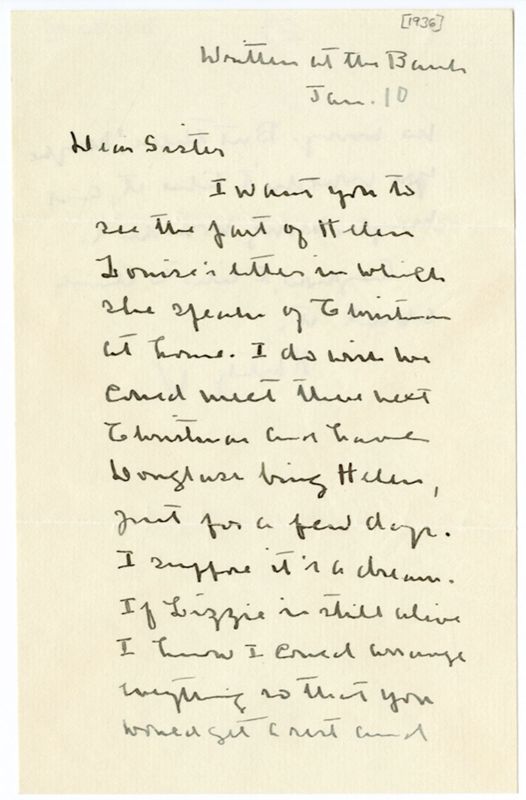 [1936]
Written at the Bank
Jan. 10
Dear Sister
I want you to
see the part of Helen
Louise's letter in which
she speaks of Christmas
at home. I do wish we
could meet there next
Christmas and have
Douglass bring Helen,
just for a few days.
I suppose it's a dream.
If Lizzie is still alive
I know I could arrange
everything so that you
would get a rest and